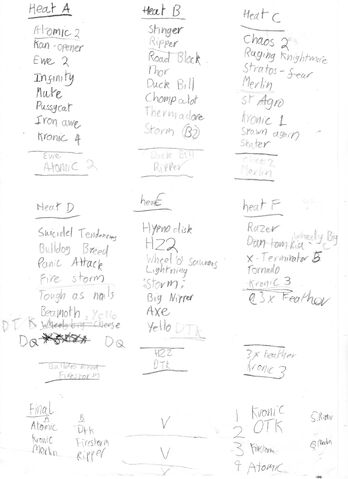 Heat A
Atomic 2
Kan-opener
Ewe 2
Infinity
Mute
Pussycat
Iron awe
Kronic 4
Ewe
Atomic 2
Heat B
Stinger
Ripper
Road Block
Thor
Duck Bill
Chompalot
Thermidore
Storm B2
Duck Bill
Ripper
Heat C
Chaos 2
Raging Knightmare
Stratos-fear
Merlin
St Agro
Kronic 1
Spawn again
Shater
Merlin
Heat D
Suicidel Tendencies
Bulldog Breed
Panic Attack
Fire storm
Tough as nails
Beamoth
Yello
DTK Wheely big cheese
DQ DQ
Firestorm
heat E
Hypno disk
HZ2
Wheel o' scissors
Lightning
Storm
Big Nipper
Axe
Yello DTK
HZ2
DTK
heat F
Razer
Dantomkia
Wheely Big
x-Terminator 5
Tornado
Kronic 3
3x Feather
3x Feather
Kronic 3
Final
A B
Atomic DTK
Kronic Firestorm
Merlin Ripper
V
V
V
1 Kronic
2 DTK
3 Firestorm
4 Atomic